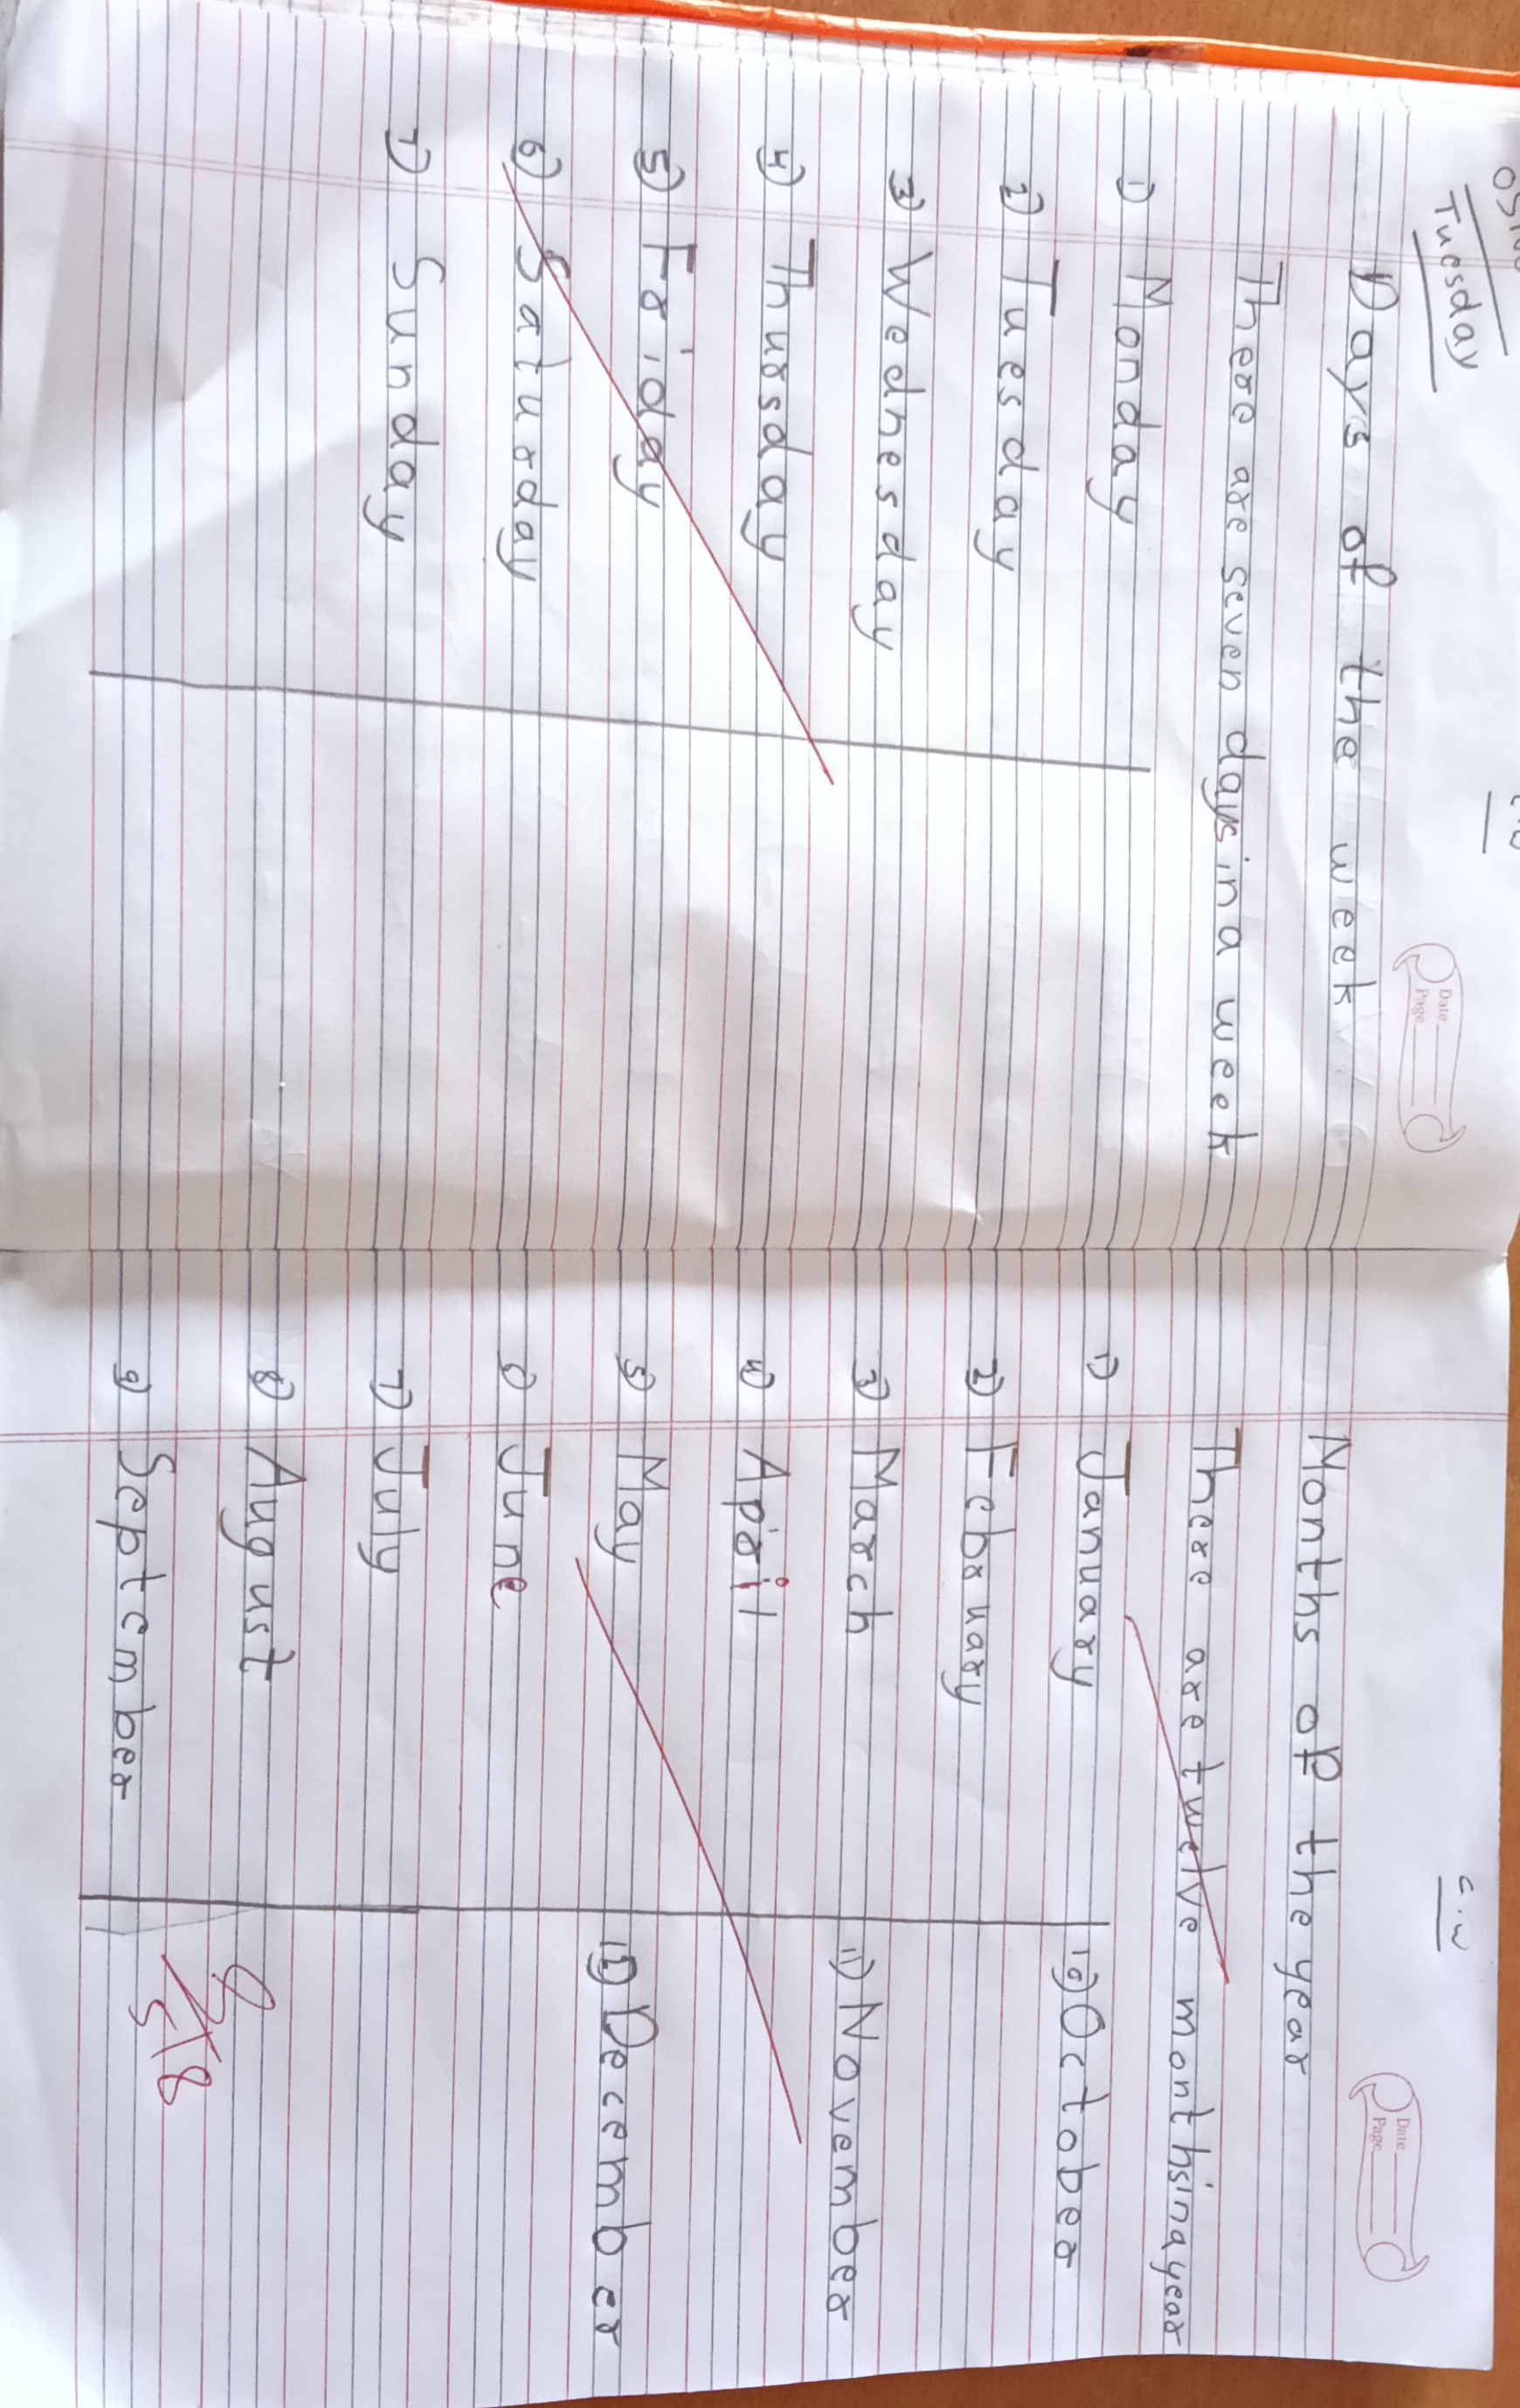 Tuesday
Date
Page
Days of the week
There are seven days in a week
1) Monday
2) Tuesday
3) Wednesday
4) Thursday
5) Friday
6) Saturday
7) Sunday
C.W
Date
Page
Months of the year
There are twelve months in a year
1) January
2) February
3) March
4) April
5) May
6) June
7) July
8) August
9) September
10) October
11) November
12) December
5/8